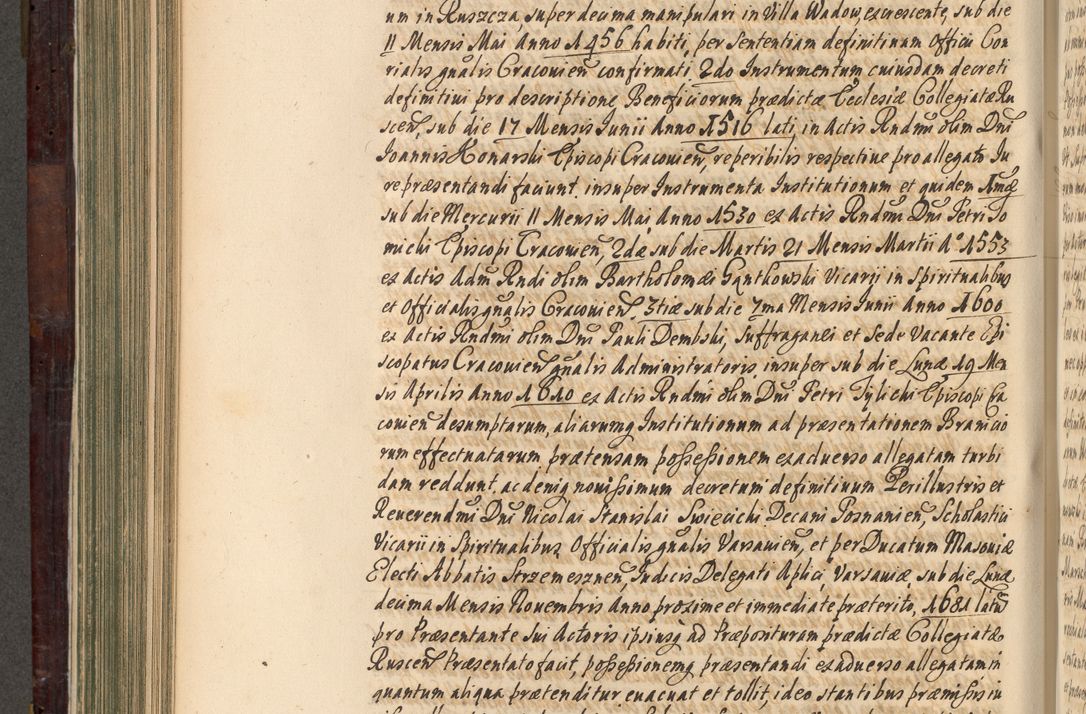 um in Ruszcza, super decima manipulari in Villa Wadow, excrescente, sub die
11 Mensis Mai Anno 1456 habiti, per Sententiam definitivam Officii Con
rialis gnalis Cracovien confirmati, 2do Instrumentum cuiusdam decreti
definitivi pro descriptione Beneficiorum prædictæ Ecclesiæ Collegiatæ Ru
scen, sub die 17 Mensis Iunii Anno 1516 lati, in Actis Rndmi olim Dni
Ioannis Konarski Episcopi Cracovien, reperibilis respective pro allegato Iu
re præsentandi faciunt, insuper Instrumenta Institutionum et quidem 1mæ
sub die Mercurii 11 Mensis Mai, Anno 1530 ex Actis Rndmi Dni Petri To
michi Episcopi Cracovien, 2dæ sub die Martis 21 Mensis Martii Aº 1553
ex Actis Adm Rndi olim Bartholomæi Gantkowski Vicarii in Spiritualibus
et Officialis gnalis Cracovien, 3tiæ sub die 7ma Mensis Iunii Anno 1600
ex Actis Rndmi olim Dni Pauli Dembski, Suffraganei et Sede Vacante Epi
scopatus Cracovien gnalis Administratoris, insuper sub die Lunæ 19 Men
sis Aprilis Anno 1610 ex Actis Rndmi olim Dni Petri Tylichi Episcopi Cra
covien desumptarum, aliarumq Institutionum ad præsentationem Branicio
rum effectuatarum, prætensam possessionem ex adverso allegatam turbi
dam reddunt, ac deniq novissimum decretum definitivum Perillustris et
Reverendmi Dni Nicolai Stanislai Swiecichi Decani Posnanien, Scholastici
Vicarii in Spiritualibus Officialis gnalis Varsavien, et per Ducatum Masoviæ
Electi Abbatis Strzemesznen, Iudicis Delegati Aplici, Varsaviæ sub die Lunæ
decima Mensis Novembris Anno proxime et immediate præterito, 1681 latum
pro Præsentante sui Actoris ipsiusq ad Præposituram prædictæ Collegiatæ
Ruscen Præsentato facit, possessionemq præsentandi ex adverso allegatam in
quantum aliqua prætenditur evacuat et tollit, ideo stantibus præmissis in